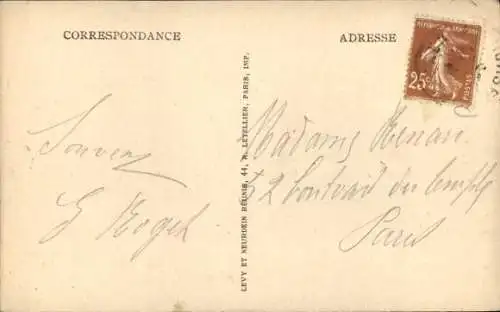 CORRESPONDANCE
ADRESSE
REPUBLIQUE FRANCAISE
25c
POSTES
Souvenir
G Rogel
LEVY ET NEURDEIN REUNIS, 44, R. LETELLIER, PARIS, IMP.
Madame Renan
52 boulvard du temple
Paris